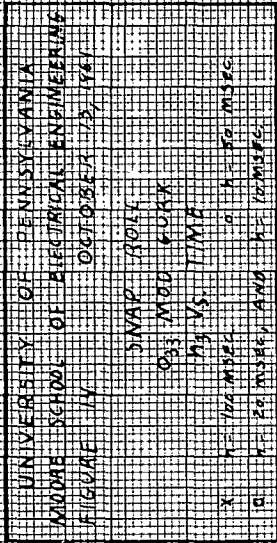 UNIVERSITY OF PENNSYLVANIA
MOORE SCHOOL OF ELECTRICAL ENGINEERING
FIGURE 14 OCTOBER 13, 1961
SNAP ROLL
O33 MOD GURK
VS. TIME
X h = 100 MSEC o h = 50 MSEC
□ h = 20 MSEC, AND h = 10 MSEC.